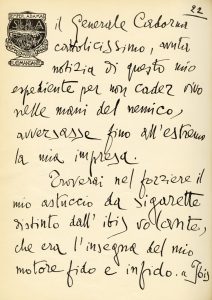 22
il Generale Cadorna
cattolicissimo, avuta
notizia di questo mio
espediente per non cader vivo
nelle mani del nemico,
avversasse fino all'estremo
la mia impresa.
Troverai nel forziere il
mio astuccio da sigarette
distinto dall'ibis volante,
che era l'insegna del mio
motore fido e infido. a Ibis